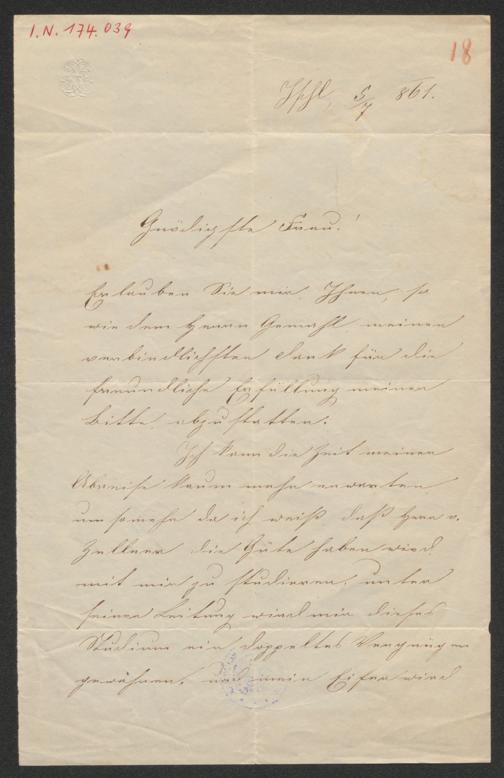 I.N. 174.039
18
Ischl, 5/7 861.
Gnädigste Frau!
Erlauben Sie mir, Ihnen, so
wie dem Herrn Gemahl meinen
verbindlichsten Dank für die
freundliche Erfüllung meiner
Bitte abzustatten.
Ich kann die Zeit meiner
Abreise kaum mehr erwarten
umsomehr da ich weiß daß Herr v.
Zellner die Güte haben wird
mit mir zu studieren, unter
seiner Leitung wird mir dieses
Studium ein doppeltes Vergnügen
gewähren, und mein Eifer wird